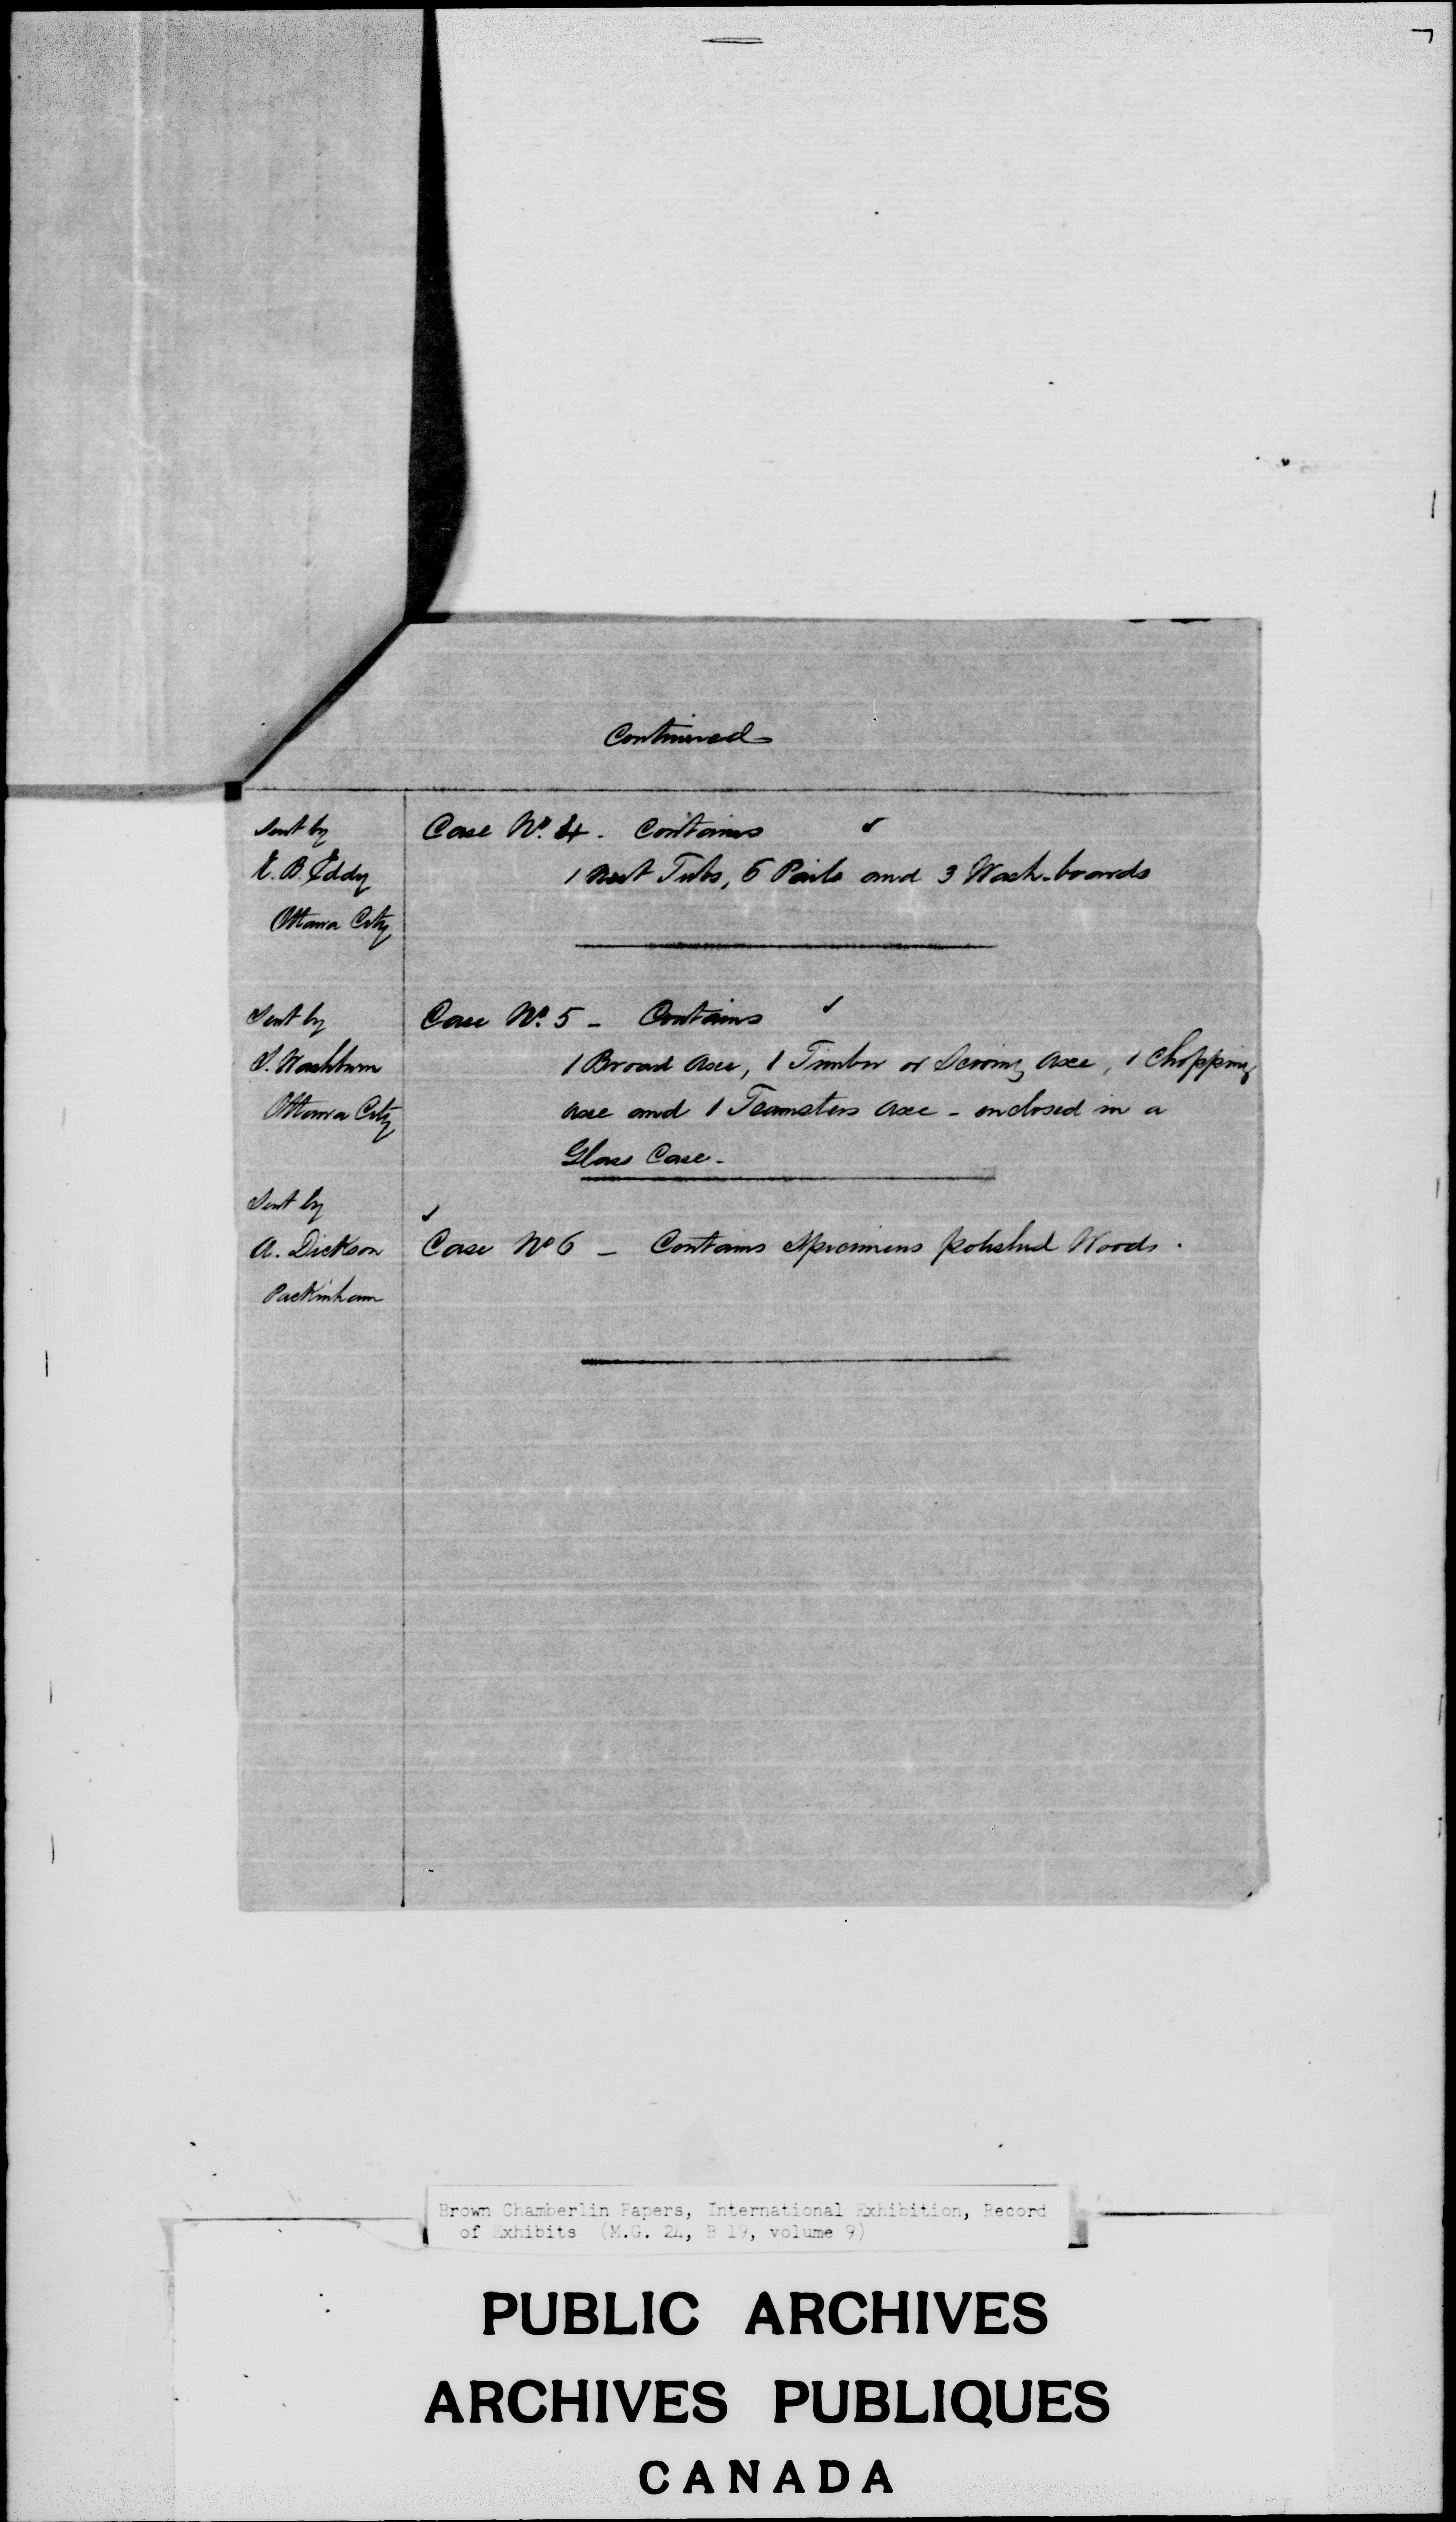 Continued
Sent by
Case No. 4. Contains ✓
E. B. Eddy
1 Nest Tubs, 6 Pails and 3 Wash-boards
Ottawa City
Sent by
Case No. 5 - Contains ✓
S. Washburn
1 Broad Axe, 1 Timber or Scoring Axe, 1 Chopping
Ottawa City
Axe and 1 Teamsters Axe - enclosed in a
Glass Case -
Sent by
✓
A. Dickson
Case No 6 - Contains Specimens polished Woods.
Packinham
Brown Chamberlin Papers, International Exhibition, Record
of Exhibits (M.G. 24, B 19, volume 9)
PUBLIC ARCHIVES
ARCHIVES PUBLIQUES
CANADA